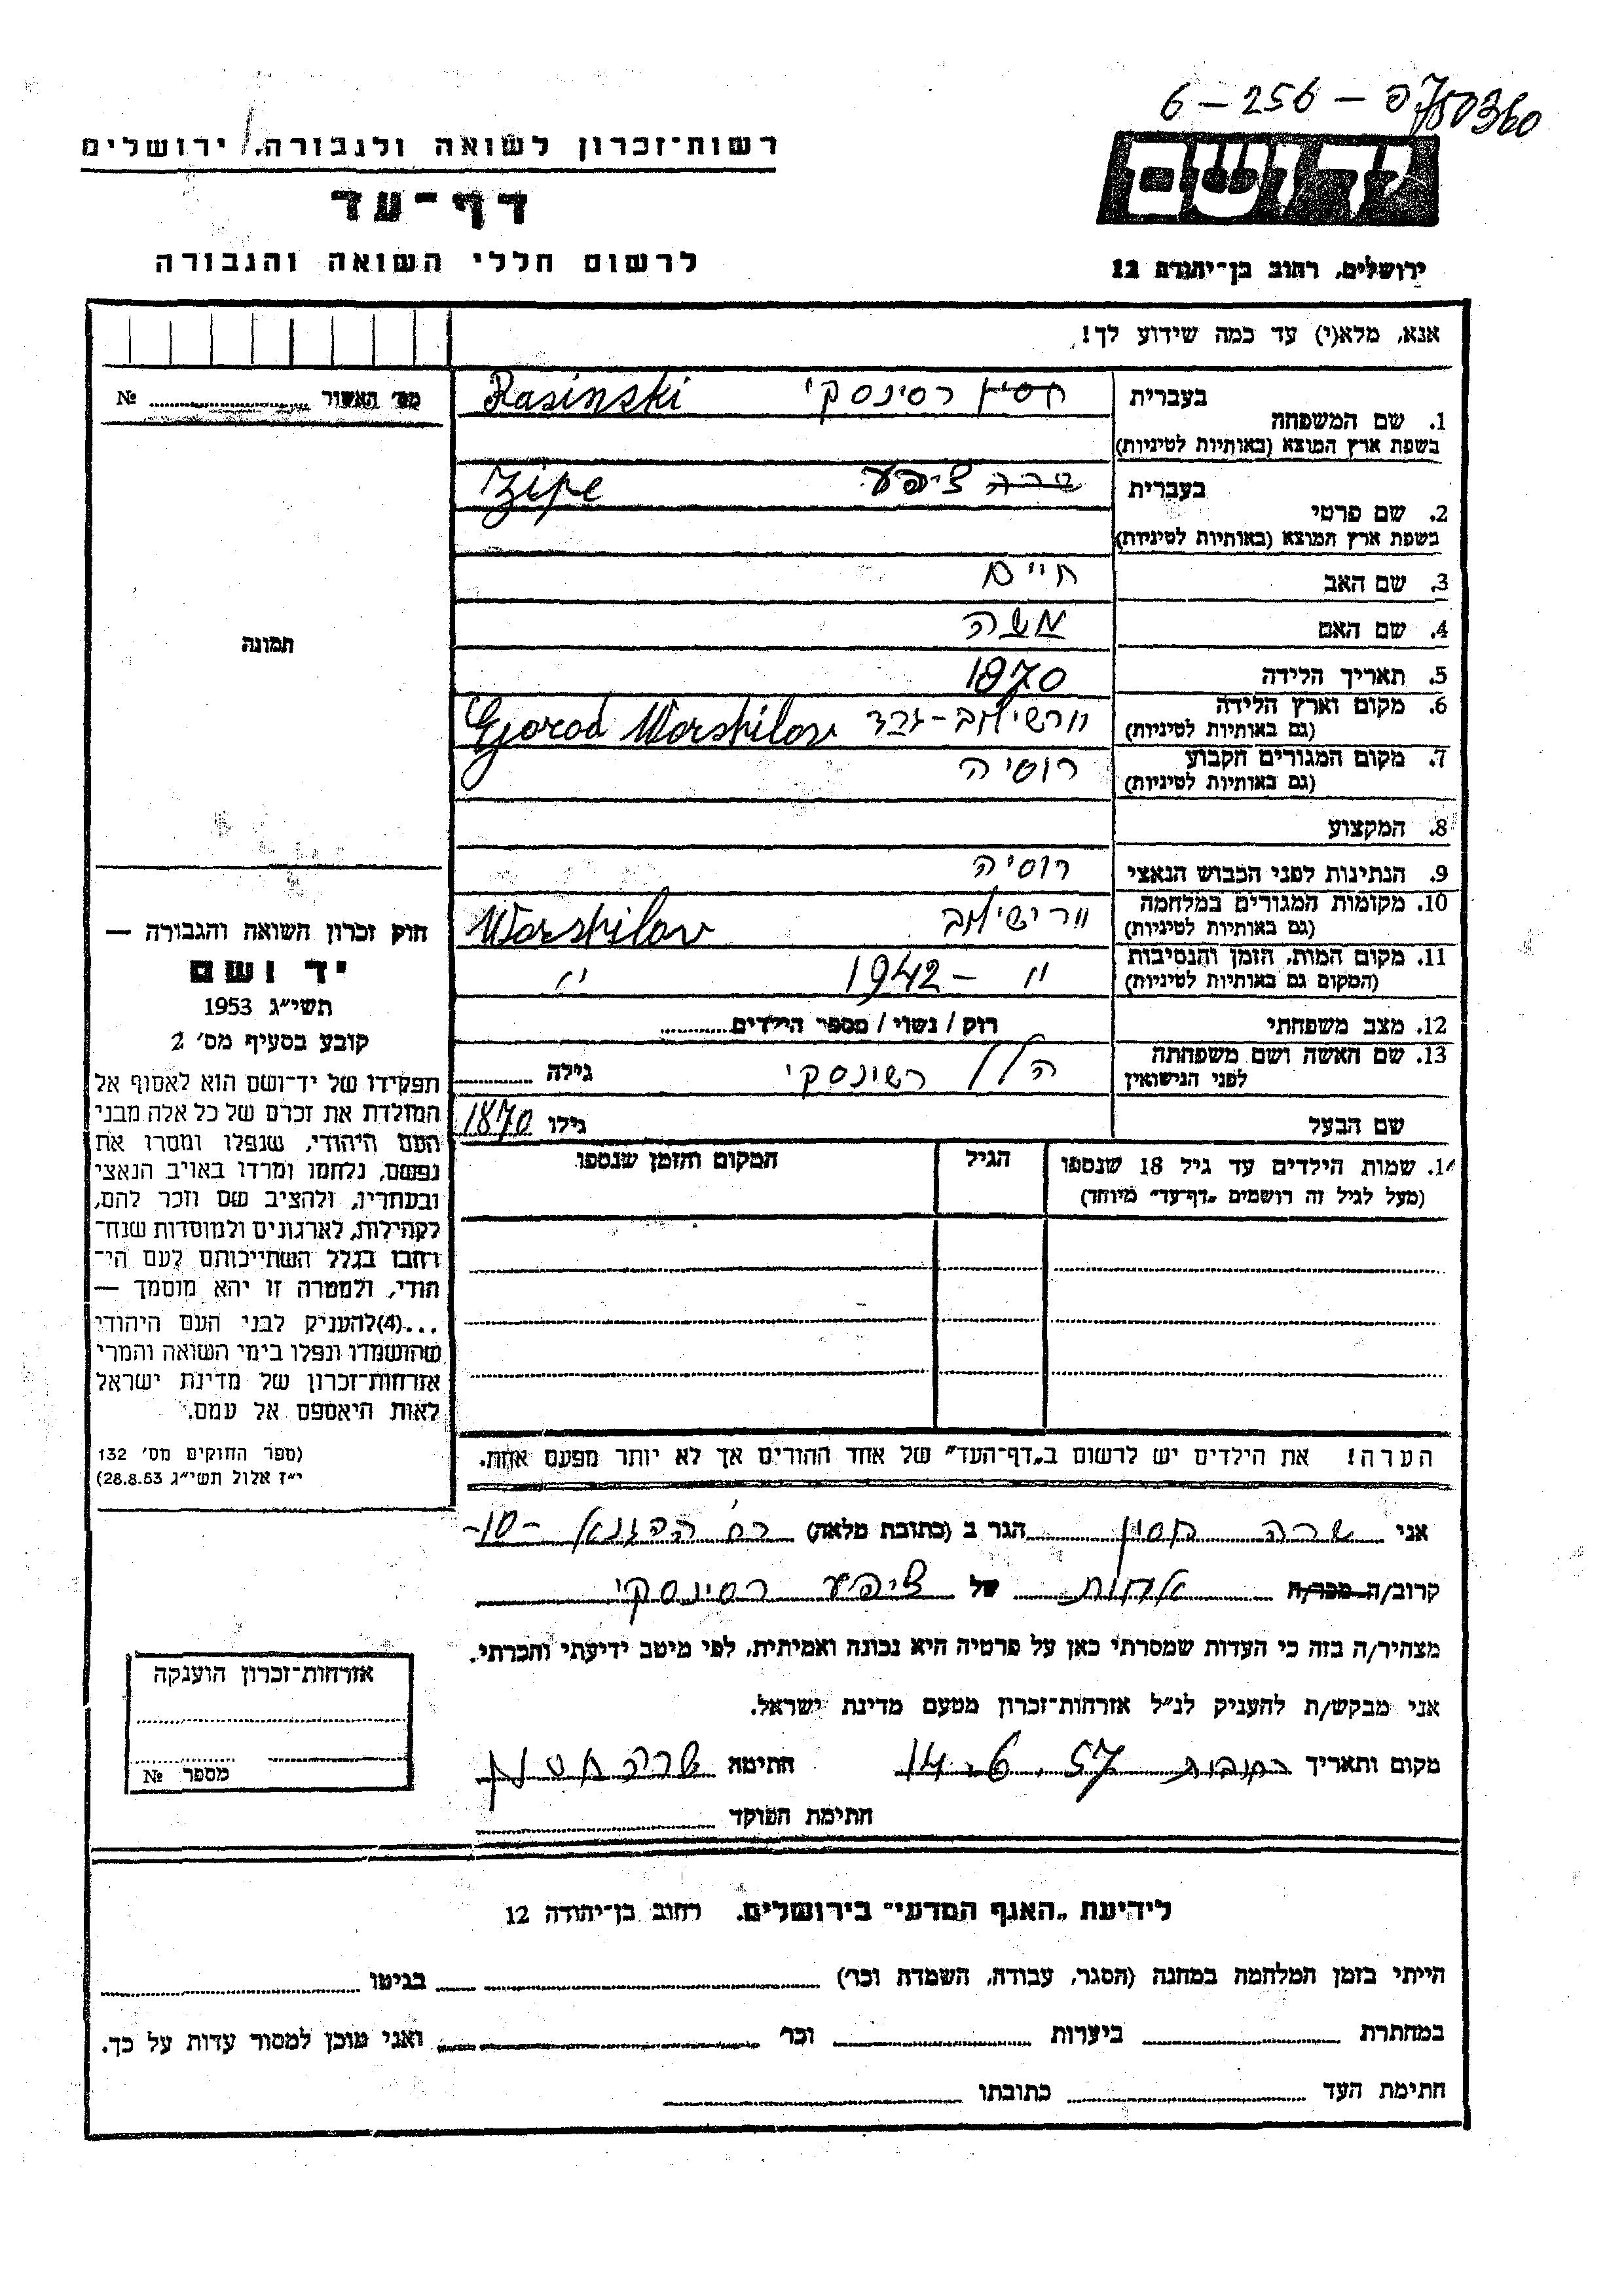 6 - 256 - 0750360
רשות־זכרון לשואה ולגבורה, ירושלים
דף־עד
לרשום חללי השואה והגבורה
יד ושם
ירושלים, רחוב בן־יהודה 12
אנא, מלא(י) עד כמה שידוע לך!
מס׳ האשור № ..........
1. שם המשפחה
בעברית
רסינסקי Rasinski
בשפת ארץ המוצא (באותיות לטיניות)
2. שם פרטי
בעברית
שרה ציפע Zipe
בשפת ארץ המוצא (באותיות לטיניות)
3. שם האב חיים
4. שם האם משה
5. תאריך הלידה 1870
6. מקום וארץ הלידה וורשילוב-גרד Gorod Worshilov
(גם באותיות לטיניות)
7. מקום המגורים הקבוע רוסיה
(גם באותיות לטיניות)
8. המקצוע
9. הנתינות לפני הכבוש הנאצי רוסיה
10. מקומות המגורים במלחמה וורישילוב Worshilov
(גם באותיות לטיניות)
11. מקום המות, הזמן והנסיבות " - 1942 "
(המקום גם באותיות לטיניות)
12. מצב משפחתי רוק / נשוי / מספר הילדים..........
13. שם האשה ושם משפחתה
לפני הנישואין
הלל רשינסקי גילה ..........
שם הבעל גילו 1870
14. שמות הילדים עד גיל 18 שנספו הגיל המקום והזמן שנספו
(מעל לגיל זה רושמים „דף־עד” מיוחד)
הערה! את הילדים יש לרשום ב„דף־העד” של אחד ההורים אך לא יותר מפעם אחת.
תמונה
חוק זכרון השואה והגבורה —
יד ושם
תשי״ג 1953
קובע בסעיף מס׳ 2
תפקידו של יד־ושם הוא לאסוף אל
המולדת את זכרם של כל אלה מבני
העם היהודי, שנפלו ומסרו את
נפשם, נלחמו ומרדו באויב הנאצי
ובעוזריו, ולהציב שם וזכר להם,
לקהילות, לארגונים ולמוסדות שנח־
רבו בגלל השתייכותם לעם הי־
הודי, ולמטרה זו יהא מוסמך —
...(4)להעניק לבני העם היהודי
שהושמדו ונפלו בימי השואה והמרי
אזרחות־זכרון של מדינת ישראל
לאות היאספם אל עמם.
(ספר החוקים מס׳ 132
י״ז אלול תשי״ג 28.8.53)
אני שרה חסין הגר ב (כתובת מלאה) רח׳ ההגנה -10-
קרוב/ה מכר/ה אחות של ציפע רסינסקי
מצהיר/ה בזה כי העדות שמסרתי כאן על פרטיה היא נכונה ואמיתית, לפי מיטב ידיעתי והכרתי.
אני מבקש/ת להעניק לנ״ל אזרחות־זכרון מטעם מדינת ישראל.
מקום ותאריך רחובות 14.6.57 חתימה שרה חסין
חתימת הפוקד
אזרחות־זכרון הוענקה
מספר №
לידיעת „האגף המדעי” בירושלים, רחוב בן־יהודה 12
הייתי בזמן המלחמה במחנה (הסגר, עבודה, השמדה וכו׳) .......... בגיטו ..........
במחתרת .......... ביערות .......... וכו׳ .......... ואני מוכן למסור עדות על כך.
חתימת העד .......... כתובתו ..........